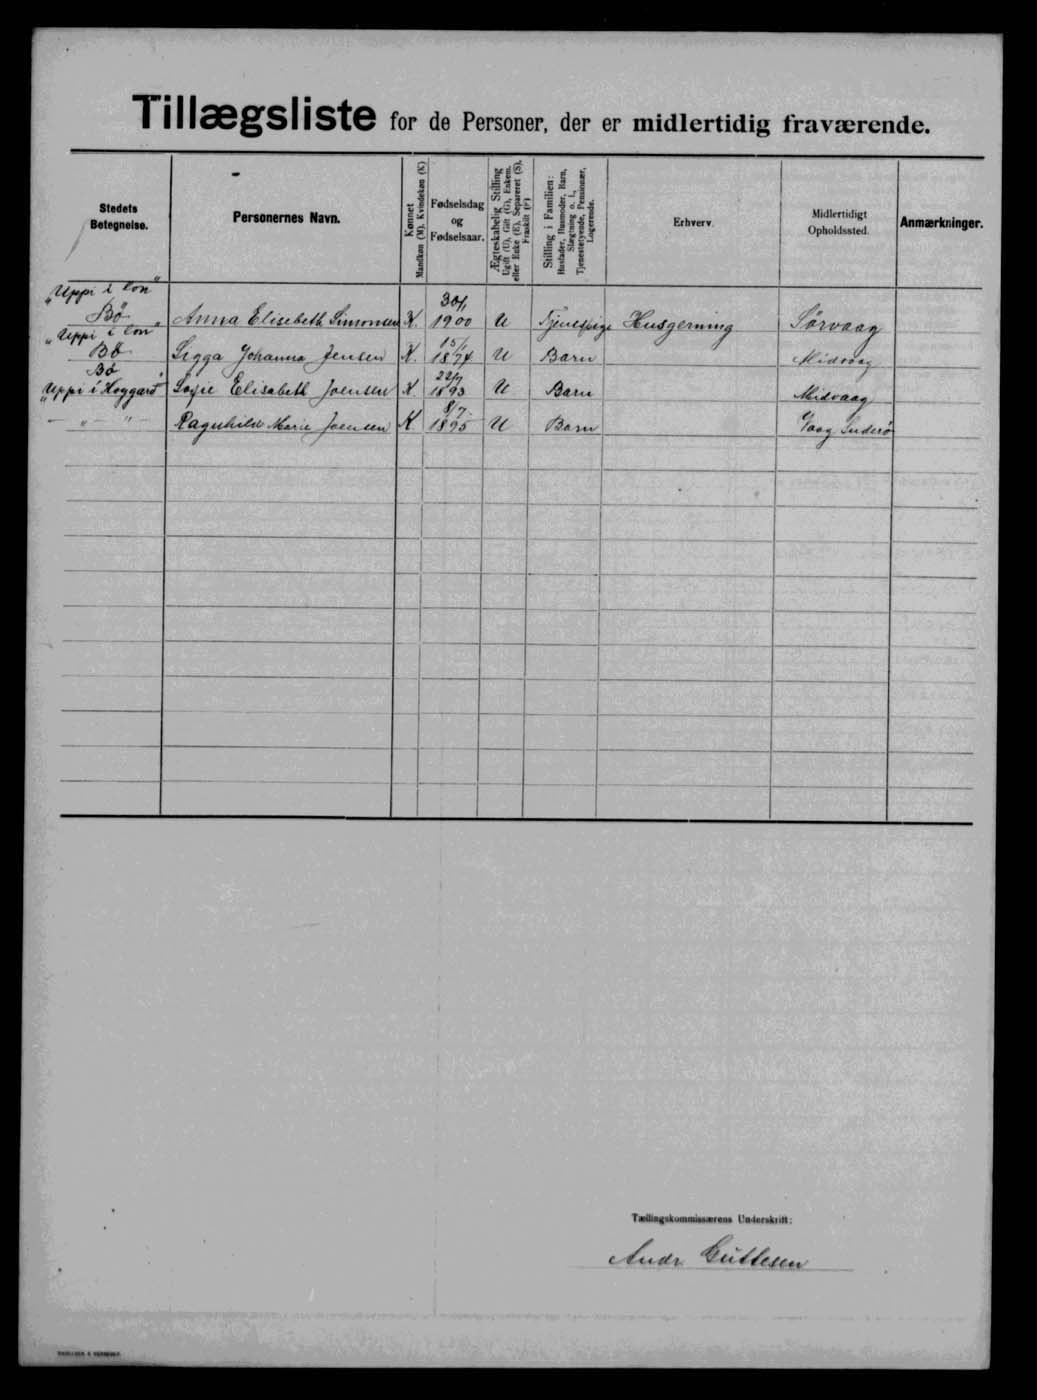 Tillægsliste for de Personer, der er midlertidig fraværende.
Stedets Betegnelse.
Personernes Navn.
Kønnet Mandkøn (M). Kvindekøn (K)
Fødselsdag og Fødselsaar.
Ægteskabelig Stilling Ugift (U), Gift (G), Enkem. eller Enke (E), Separeret (S), Fraskilt (F)
Stilling i Familien: Husfader, Husmoder, Barn, Slægtning o. l., Tjenestetyende, Pensionær, Logerende.
Erhverv.
Midlertidigt Opholdssted.
Anmærkninger.
"Uppi i Ton"
Bö Anna Elisebeth Simonsen K. 30/1 1900 U Tjenestpige Husgerning Sörvaag
"Uppi i Ton"
Bö Sigga Johanna Jensen K. 15/1 1874 U Barn Midvaag
Bö
"Uppi i Hoggard" Sofie Elisabeth Joensen K. 22/7 1893 U Barn Midvaag
— " — " Ragnhild Marie Joensen K 8/7 1895 U Barn Vaag Suderö
Tællingskommissærens Underskrift:
Andr. Guttesen